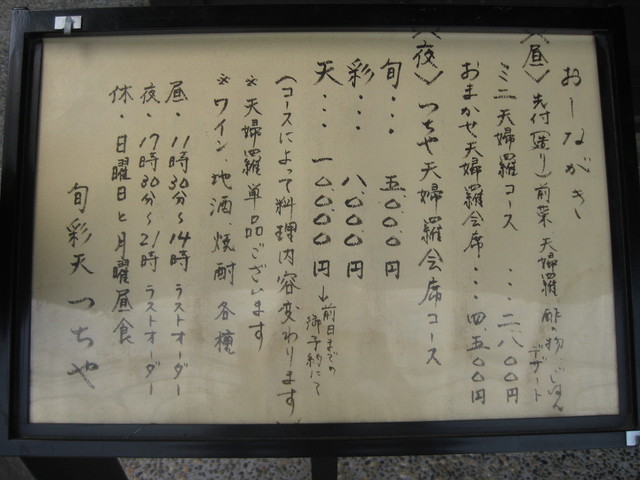 おしながき
〈昼〉先付(造り)前菜 天婦羅 酢の物 ごはん デザート
ミニ天婦羅コース ・・・二、八〇〇円
おまかせ天婦羅会席・・・四、五〇〇円
〈夜〉つちや天婦羅会席コース
旬・・・五、〇〇〇円
彩・・・八、〇〇〇円
天・・・一〇、〇〇〇円→前日までの御予約にて
(コースによって料理内容変わります)
※天婦羅単品ございます
※ワイン、地酒、焼酎各種
昼・11時30分〜14時 ラストオーダー
夜・17時30分〜21時 ラストオーダー
休・日曜日と月曜昼食
旬彩天 つちや